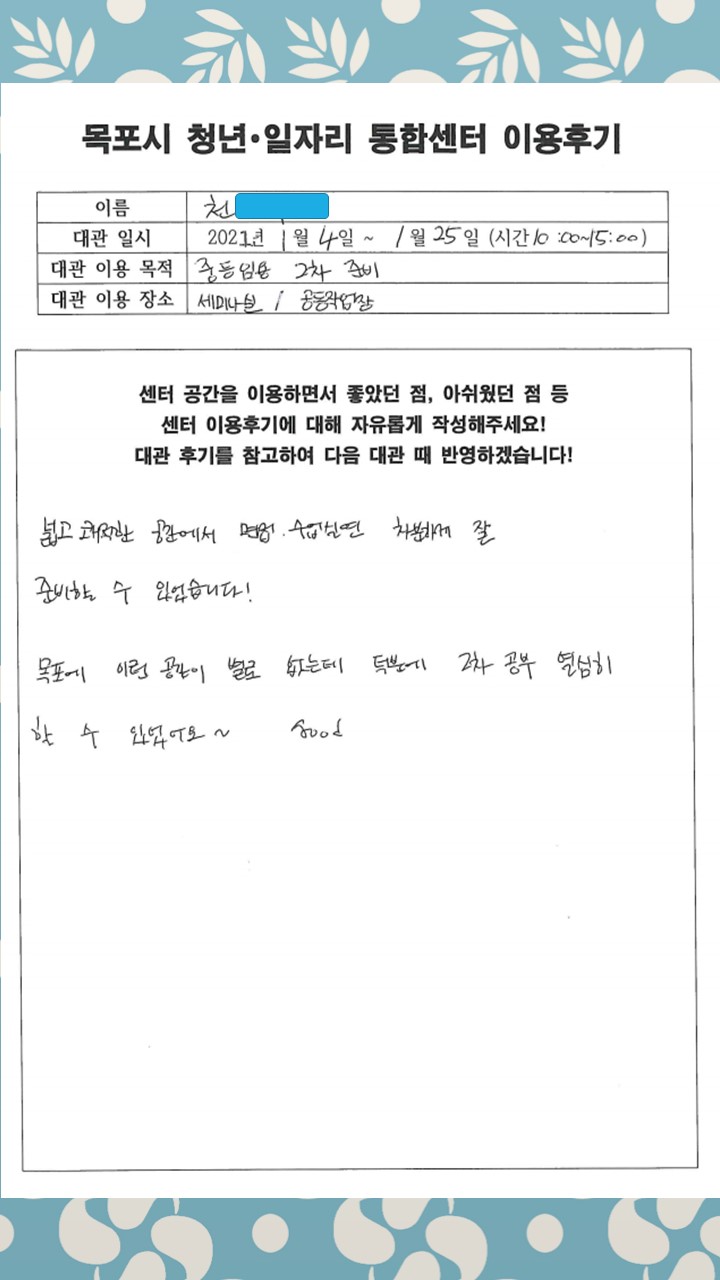 목포시 청년·일자리 통합센터 이용후기
이름 천
대관 일시 2021년 1월 4일 ~ 1월 25일 (시간10:00~15:00)
대관 이용 목적 중등임용 2차 준비
대관 이용 장소 세미나실 / 공동작업장
센터 공간을 이용하면서 좋았던 점, 아쉬웠던 점 등
센터 이용후기에 대해 자유롭게 작성해주세요!
대관 후기를 참고하여 다음 대관 때 반영하겠습니다!
넓고 쾌적한 공간에서 면접·수업실연 차분하게 잘
준비할 수 있었습니다!
목포에 이런 공간이 별로 없는데 덕분에 2차 공부 열심히
할 수 있었어요~ Good